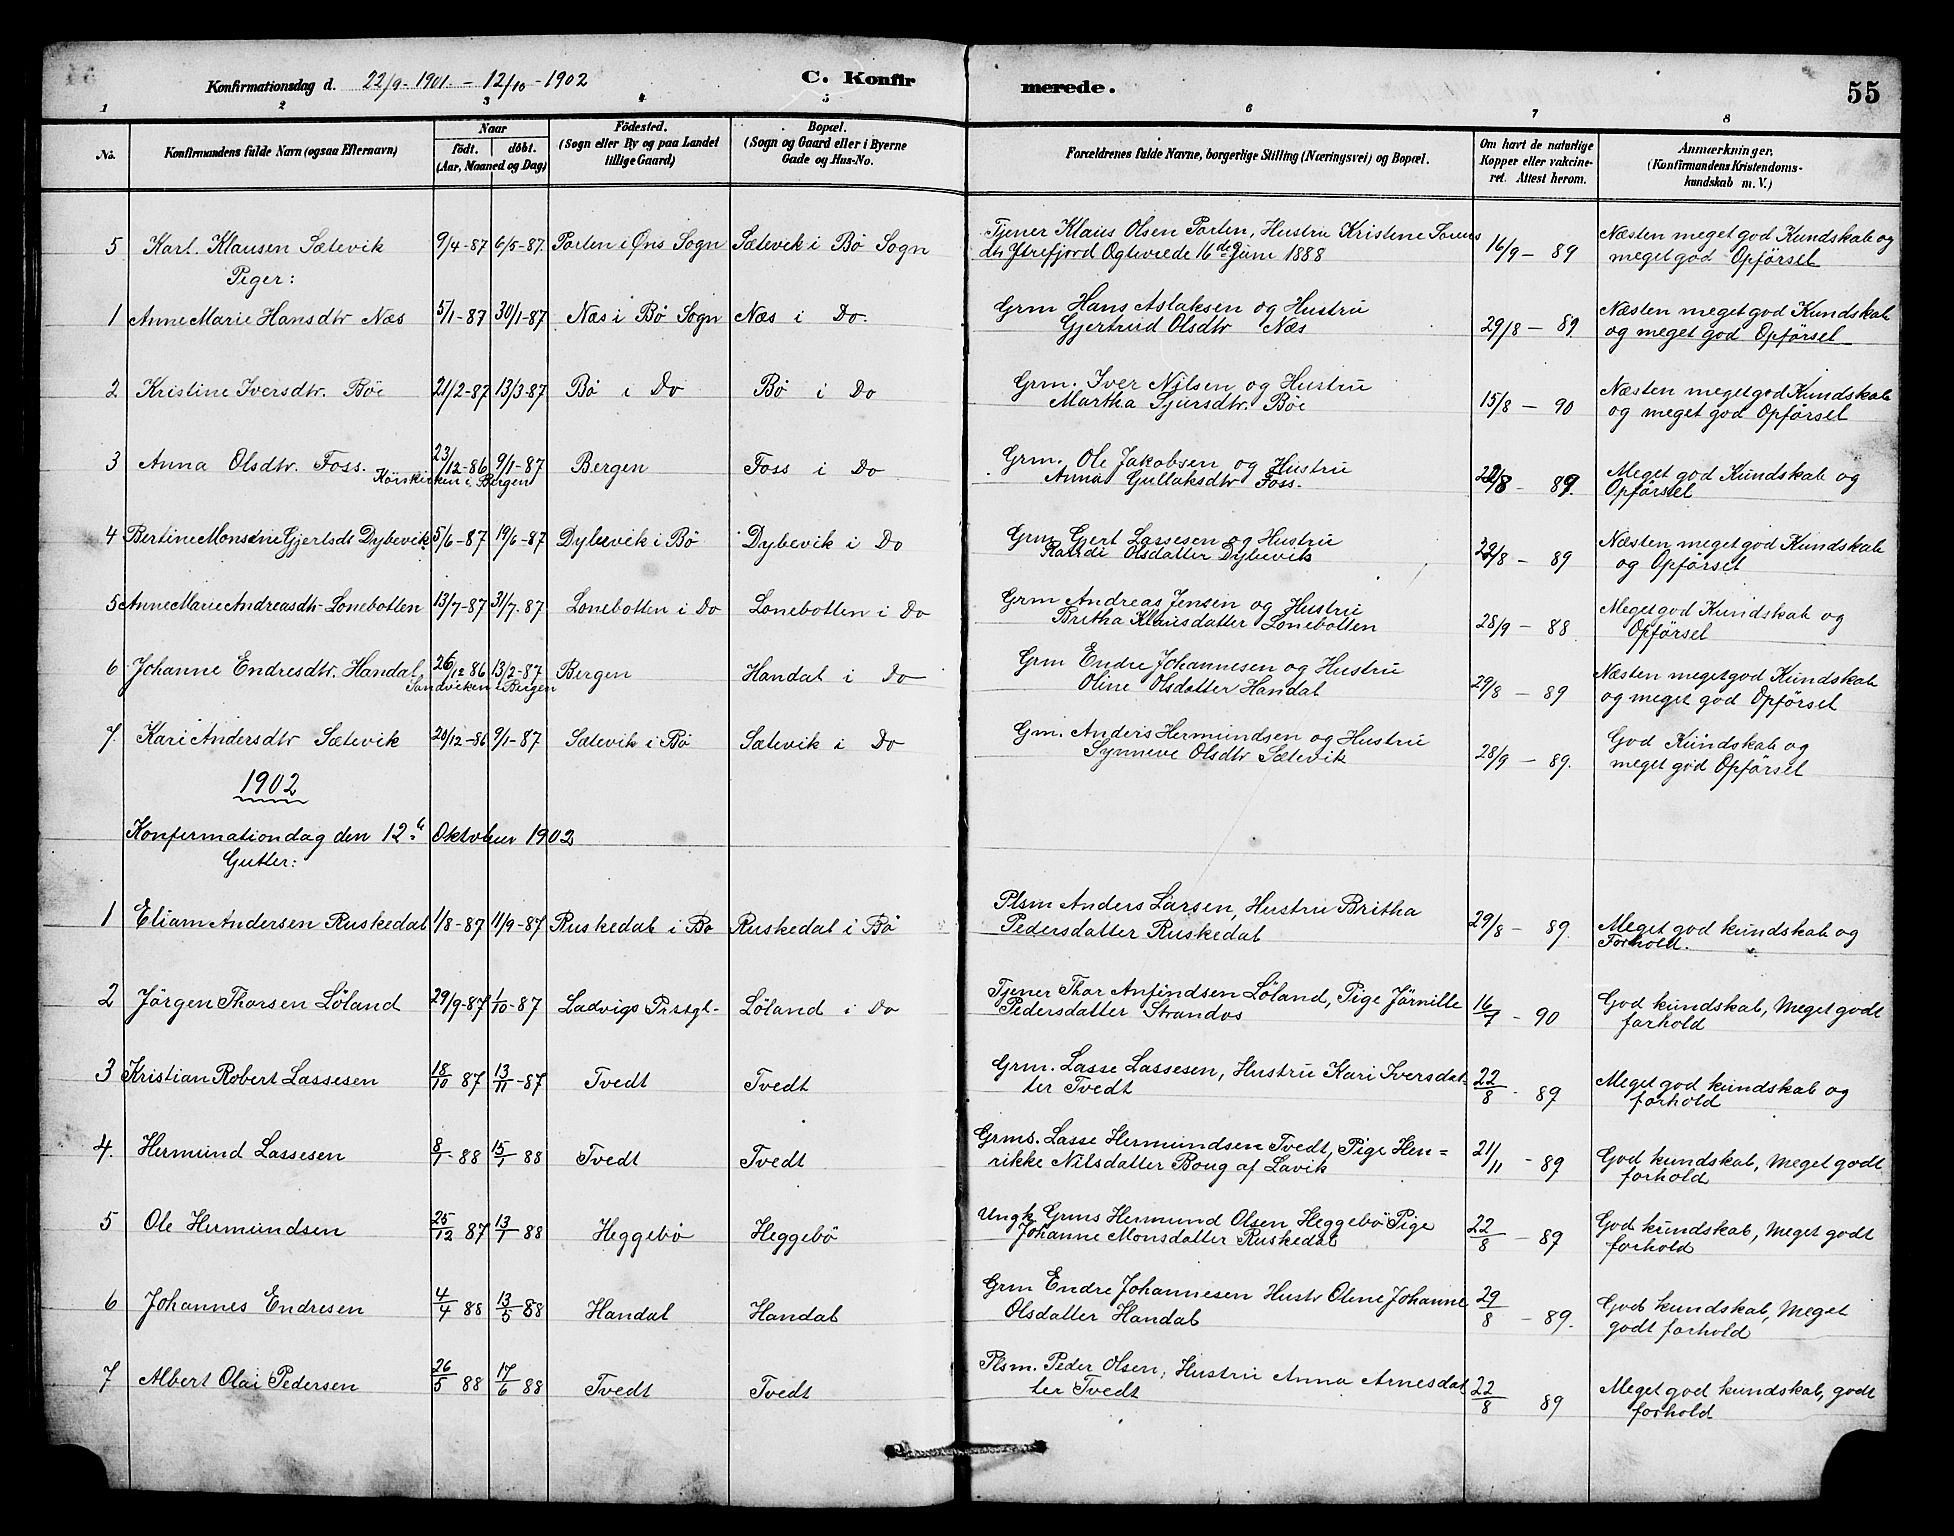 Konfirmationsdag d. 22/9-1901 - 12/10-1902 C. Konfirmerede. 55
1 2 3 4 5 6 7 8
No. Konfirmandens fulde Navn (ogsaa Efternavn) Naar födt. döbt. (Aar, Maaned og Dag) Födested. (Sogn eller By og paa Landet tillige Gaard) Bopæl. (Sogn og Gaard eller i Byerne Gade og Hus-No.
Forældrenes fulde Navne, borgerlige Stilling (Næringsvei) og Bopæl. Om havt de naturlige Kopper eller vakcineret. Attest herom. Anmærkninger, (Konfirmandens Kristendomskundskab m. V.)
5 Karl. Klausen Sætevik 9/4-87 6/5-87. Porten i Øns Sogn Sætevik i Bø Sogn Tjener Klaus Olsen Porten, Hustru Kristine Sørens 16/9 - 89 Næsten meget god Kundskab og
dtr Ytrefjord Ægteviede 16de Juni 1888 meget god Opførsel
Piger:
1 Anne Marie Hansdtr Næs 5/1-87 30/1-87 Næs i Bø Sogn Næs i Do. Grm Hans Aslaksen og Hustru 29/8 - 89. Næsten meget god Kundskab
Gjertrud Olsdtr Næs og meget god Opførsel
2 Kristine Iversdtr. Böe 21/2-87 13/3-87 Bø i Do Bø i Do Grm. Iver Nilsen og Hustru 15/8 - 90 Næsten meget god Kundskab
Martha Sjursdtr. Böe og meget god Opførsel
3 Anna Olsdtr. Foss. 23/12-86 9/1-87 Bergen Foss i Do Grm. Ole Jakobsen og Hustru 22/8 - 89. Meget god Kundskab og
Korskirken i Bergen Anna Gullaksdtr Foss. Opførsel
4 Bertine Monsine Gjertsdt Dybevik 5/6-87 19/6-87 Dybevik i Bø Dybevik i Do Grm Gjert Lassesen og Hustru 22/8 - 89 Næsten meget god Kundskab
Randi Olsdatter Dybevik og Opførsel
5 Anne Marie Andreasdtr Lonebotten 13/7-87 31/7-87 Lonebotten i Do Lonebotten i Do Grm Andreas Jensen og Hustru 28/9 - 88 Meget god Kundskab og
Britha Klausdatter Lonebotten Opførsel
6 Johanne Endresdtr. Handal 26/12 86 13/2-87 Bergen Handal i Do Grm Endre Johannesen og Hustru 29/8 - 89 Næsten meget god Kundskab
Sandviken i Bergen Oline Olsdatter Handal og meget god Opførsel
7. Kari Andersdtr Sætevik 20/12-86 9/1-87 Sætevik i Bø Sætevik i Do Gm. Anders Hermundsen og Hustru 28/9 - 89. God Kundskab og
Synneve Olsdtr Sætevik meget god Opførsel
1902
Konfirmationdag den 12te Oktober 1902
Gutter:
1 Eliam Andersen Ruskedal 1/8-87 11/9-87 Ruskedal i Bø Ruskedal i Bø Plsm Anders Larsen, Hustru Britha 29/8 - 89. Meget god kundskab og
Pedersdatter Ruskedal Forhold.
2 Jörgen Thorsen Löland 29/9-87 1/10-87 Ladvigs Prstgl- Löland i Do Tjener Thor Anfindsen Löland, Pige Jörnille 16/7 - 90 God kundskab, Meget godt
Pedersdatter Strandos forhold
3 Kristian Robert Lassesen 18/10 87 13/11-87 Tvedt Tvedt Grm. Lasse Lassesen, Hustru Kari Iversdat- 22/8 - 89 Meget god kundskab og
ter Tvedt forhold
4. Hermund Lassesen 8/1-88 15/1 88 Tvedt Tvedt Grms. Lasse Hermundsen Tvedt, Pige Hen= 21/11 - 89 God kundskab, Meget godt
rikke Nilsdatter Boug af Lavik forhold
5 Ole Hermundsen 25/12 87 13/1 88 Heggebö Heggebö Ungk. Grms Hermund Olsen Heggebö Pige 22/8 - 89 God kundskab, Meget godt
Johanne Monsdatter Ruskedal forhold
6 Johannes Endresen 4/4 88 13/5 88 Handal Handal Grm Endre Johannesen Hustr Oline Johanne 29/8 - 89. God kundskab, Meget
Olsdatter Handal godt forhold
7 Albert Olai Pedersen 26/5 88 17/6 88 Tvedt Tvedt Plsm. Peder Olsen, Hustru Anna Arnesdat 22/8 89 Meget god kundskab, godt
ter Tvedt forhold